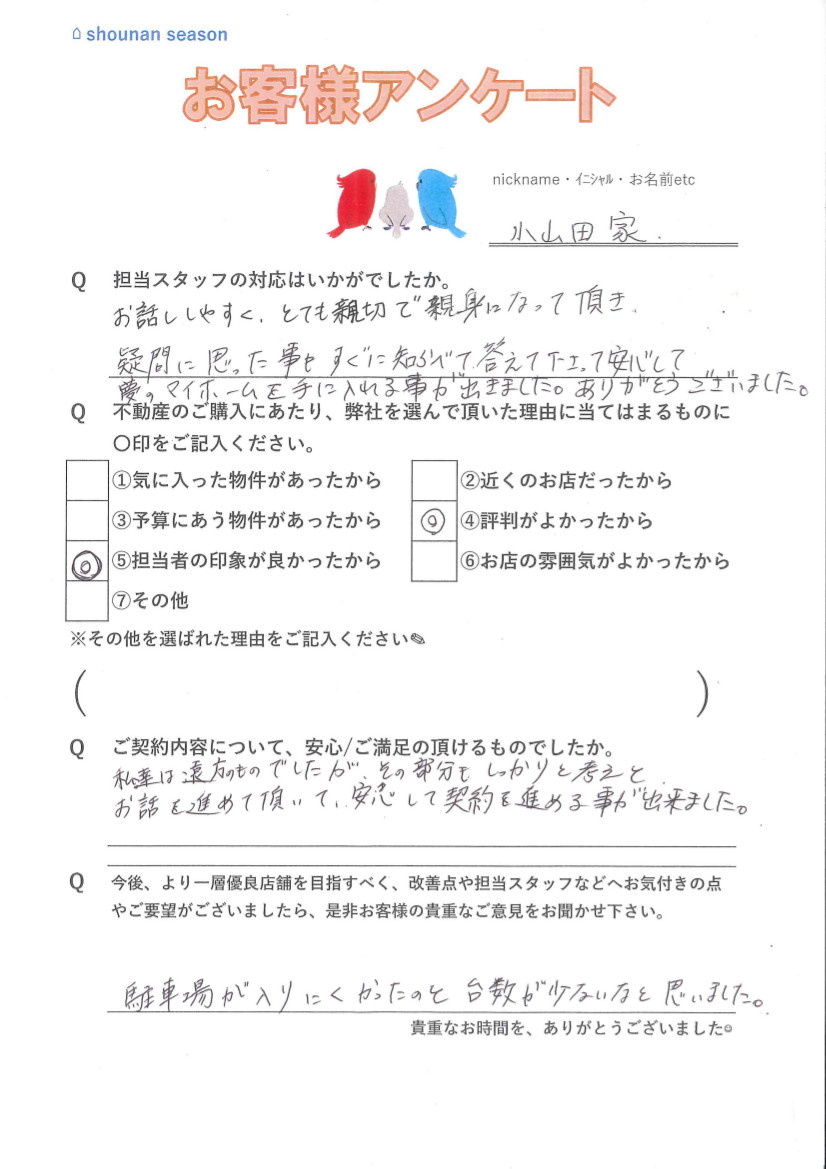 shounan season
お客様アンケート
nickname・ｲﾆｼｬﾙ・お名前etc
小山田家.
Q 担当スタッフの対応はいかがでしたか。
お話ししやすく、とても親切で親身になって頂き、
疑問に思った事もすぐに知らべて答えて下さって安心して
夢のマイホームを手に入れる事が出きました。ありがとうございました。
Q 不動産のご購入にあたり、弊社を選んで頂いた理由に当てはまるものに
〇印をご記入ください。
①気に入った物件があったから ②近くのお店だったから
③予算にあう物件があったから ◎ ④評判がよかったから
◎ ⑤担当者の印象が良かったから ⑥お店の雰囲気がよかったから
⑦その他
※その他を選ばれた理由をご記入ください✎
( )
Q ご契約内容について、安心/ご満足の頂けるものでしたか。
私達は遠方のものでしたが、その部分もしっかりと考え
お話を進めて頂いて、安心して契約を進める事が出来ました。
Q 今後、より一層優良店舗を目指すべく、改善点や担当スタッフなどへお気付きの点
やご要望がございましたら、是非お客様の貴重なご意見をお聞かせ下さい。
駐車場が入りにくかったのと台数が少ないなと思いました。
貴重なお時間を、ありがとうございました☺